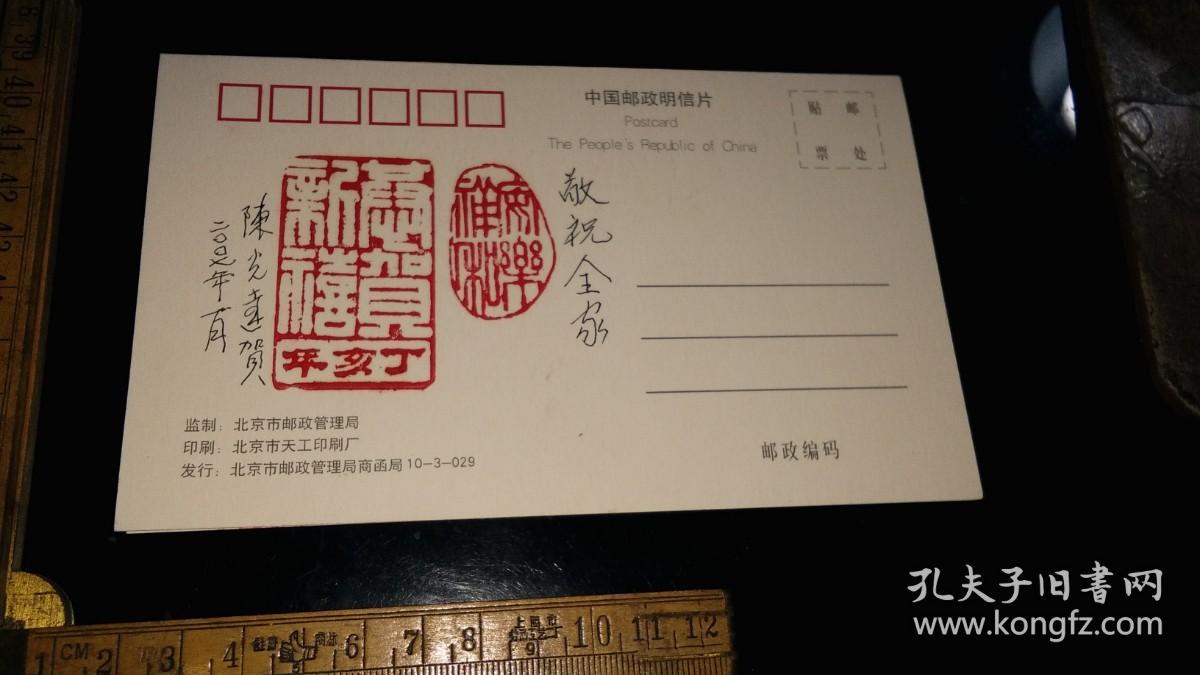 中国邮政明信片
Postcard
The People's Republic of China
贴 邮
票 处
敬祝全家
安樂
雍和
恭賀
新禧
丁亥年
陳光達賀
二〇〇七年一月
监制：北京市邮政管理局
印刷：北京市天工印刷厂
发行：北京市邮政管理局商函局10-3-029
邮政编码
孔夫子旧書网
www.kongfz.com
39
40
41
42
1 CM 2 3 4 5 6 7 8 9 10 11 12